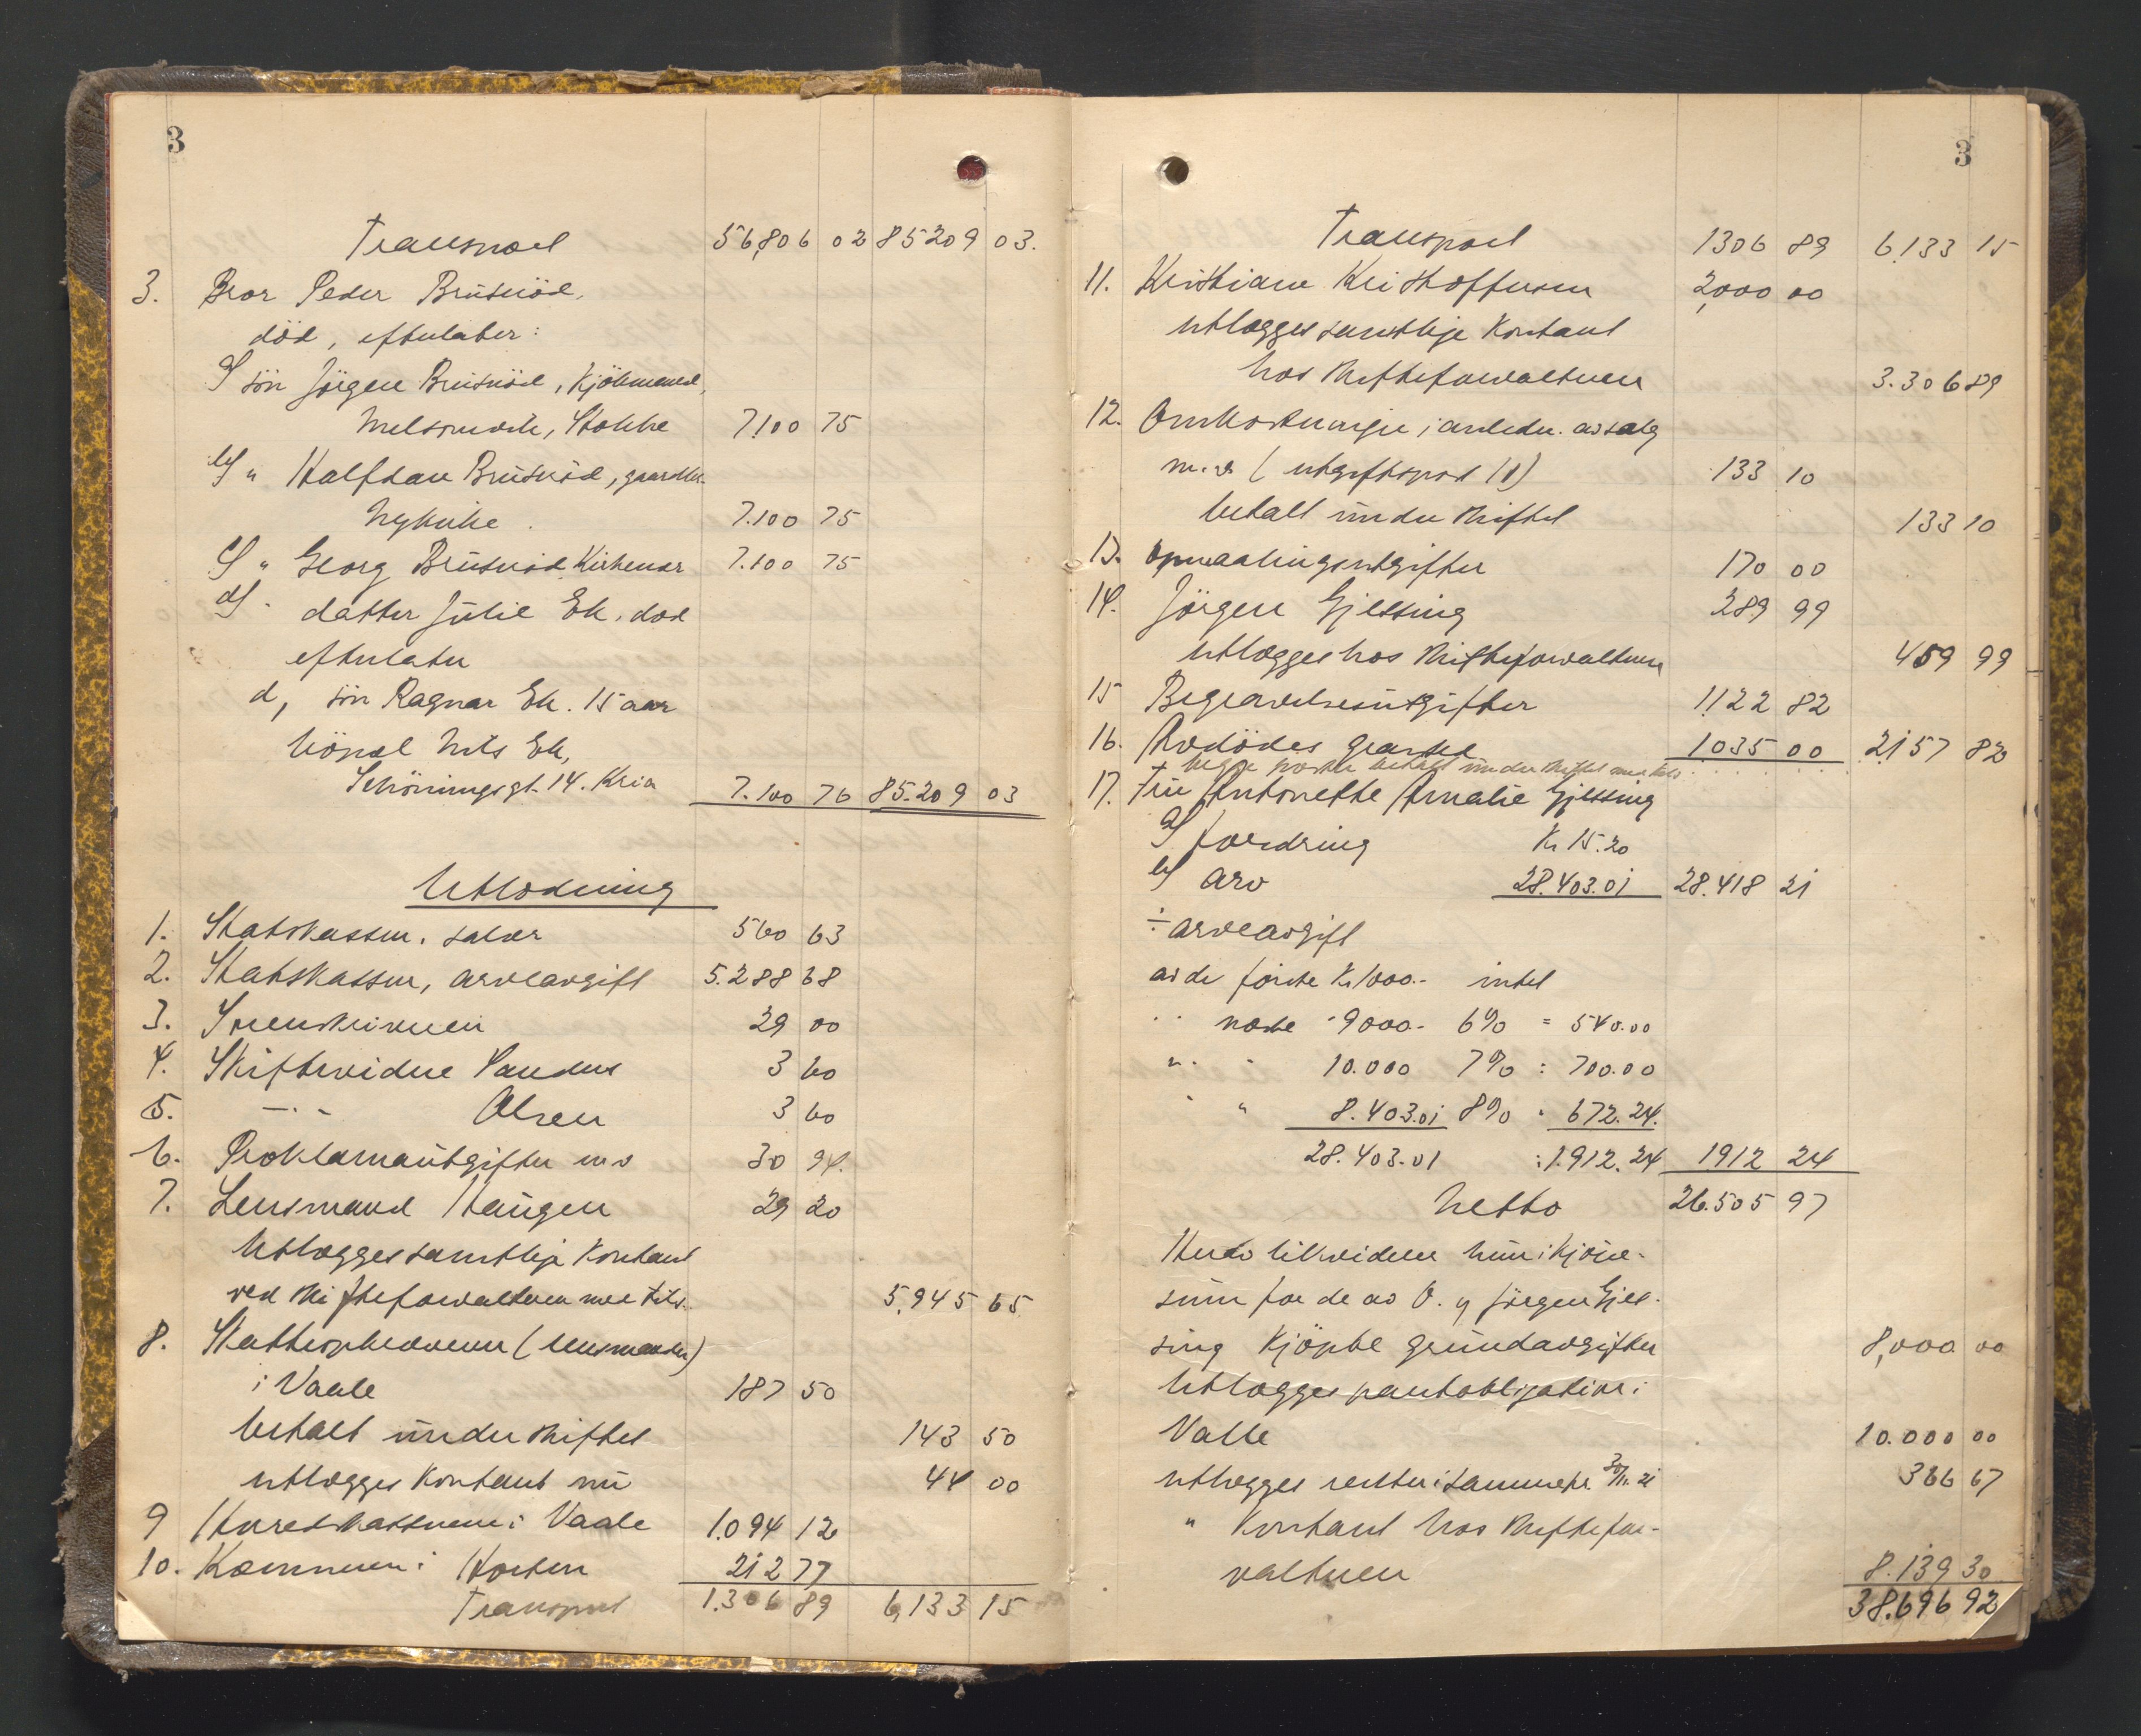 3
Transport 56,806 02 85209 03.
3. Bror Peder Brusnöd,
död, efterlater:
a/ sön Jörgen Brusnöd, Kjöbmand,
Melsomvik, Stokke 7100 75
b/ " Halfdan Brusnöd, gaardbr.
Nykirke. 7.100 75
c/ " Georg Brusnöd Kirkenær 7.100 75
d/ - datter Julie Ek, död
efterlater
d, sön Ragnar Ek. 15 aar
Nils Ek,
Schöningsgt. 14. Kria 7.100 76 85.209 03
Utlodning
1. Statskassen, salær 560 63
2. Statskassen, arveavgift 5.288 68
3. Sorenskriveren 29 00
4. Skiftevidne 3 60
5. —"— Olsen 3 60
6. Proklamautgifter m v 30 94.
7. Lensmand Haugen 29 20
Utlægges samtlige Kontant
ved skifteforvalteren 5,945 65
8. Skatteopkræveren (lensmanden)
i Vaale 187 50
betalt under skiftet 143 50
utlægges Kontant nu 44 00
9 Herredskassereren i Vaale 1.094 12
10. Kæmneren i Horten 212 77
Transport 1.306 89 6,133 15
3
Transport 1306 89 6,133 15
11. Kristiane Kristoffersen 2,000 00
utlægges samtlige Kontant
hos skifteforvalteren 3.306 89
12. Omkostninger i anledn. av salg
m.v. (utgiftspost 11) 133 10
betalt under skiftet 133 10
13. Opmaalingsutgifter 170 00
14. Jörgen Gjessing 289 99
utlægges hos skifteforvalteren 459 99
15 Begravelsesutgifter 1122 82
16. Avdödes gravsted 1035 00 2157 82
begge poster betalt under skiftet
17. Fru Antonette Amalie Gjessing
a/ fordring Kr 15.20
b/ arv 28.403.01 28.418 21
÷ arveavgift
av de förste Kr 1000.- intet
" næste " 9000.- 6% = 540.00
" " 10.000 7% = 700.00
" " 8.403.01 8% " 672.24.
28.403.01 : 1.912.24 1912 24
Netto 26.505 97
Herav likviderer hun i kjöpe-
sum for de av O. og Jörgen Gjes-
sing Kjöpte grundavgifter 8,000 00
Utlægges pantobligation i
Valle 10.000 00
utlægges renter i samme pr. 30/11. 21 366 67
" Kontant hos skiftefor-
valteren 8.139 30
38.696 92